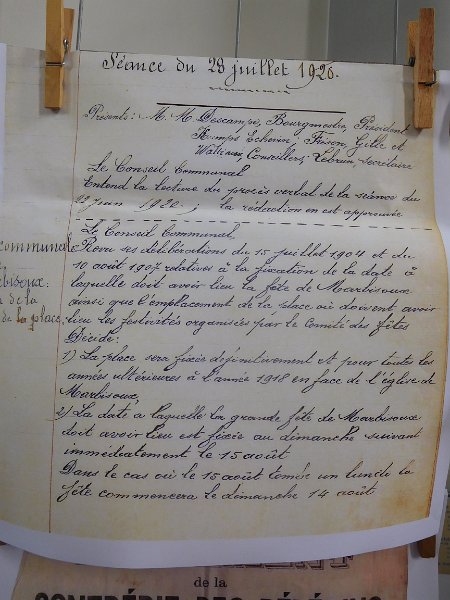 Séance du 29 juillet 1920.
Présents: M. M. Descampe, Bourgmestre, Président
Kumps Echevin, Fuson, Gille et
Conseillers, Lebrun, Secrétaire
Le Conseil Communal
Entend la lecture du procès verbal de la séance du
juin 1920; la rédaction en est approuvée
Le Conseil Communal,
Revu ses délibérations du 15 juillet 1904 et du
10 août 1907 relatives à la fixation de la date à
laquelle doit avoir lieu la fête de Marbisoux
ainsi que l'emplacement de la place où doivent avoir
lieu les festivités organisées par le Comité des fêtes
Décide:
1) La place sera fixée définitivement et pour toutes les
années ultérieures à l'année 1918 en face de l'église de
Marbisoux,
2) La date à laquelle la grande fête de Marbisoux
doit avoir lieu est fixée au dimanche suivant
immédiatement le 15 août
Dans le cas où le 15 août tombe un lundi la
fête commencera le dimanche 14 août
communale
bisoux.
de la
de la place,
de la
CONFRÉRIE DES